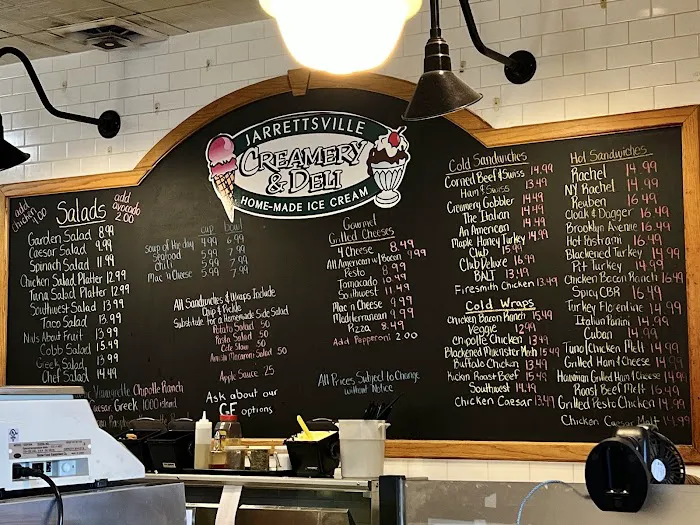 JARRETTSVILLE
CREAMERY
& DELI
HOME-MADE ICE CREAM
add chicken
add avocado 2.00
Salads
Garden Salad 8.99
Caesar Salad 9.99
Spinach Salad 11.99
Chicken Salad Platter 12.99
Tuna Salad Platter 12.99
Southwest Salad 13.99
Taco Salad 13.99
Nuts About Fruit 13.99
Cobb Salad 15.49
Greek Salad 13.99
Chef Salad 14.49
Vinaigrette Chipotle Ranch
Caesar Greek 1000 island
cup bowl
Soup of the day 4.99 6.99
Seafood 5.99 7.99
Chili 5.99 7.99
Mac n Cheese 5.99 7.99
All Sandwiches & Wraps Include
Chip & Pickle
Substitute for a Homemade Side Salad
Potato Salad 50
Pasta Salad 50
Cole Slaw 50
Amish Macaroni Salad 50
Apple Sauce 25
Ask about our
GF options
Gourmet
Grilled Cheeses
4 Cheese 8.49
All American w/ Bacon 9.99
Pesto 8.99
Tornado 10.49
Southwest 11.49
Mac n Cheese 9.99
Mediterranean 9.99
Pizza 8.49
Add Pepperoni 2.00
All Prices Subject to Change
without Notice
Cold Sandwiches
Corned Beef & Swiss 14.99
Ham & Swiss 13.49
Creamery Gobbler 14.49
The Italian 14.49
An American 14.49
Maple Honey Turkey 14.49
Club 15.99
Club Deluxe 16.99
BALT 13.49
Firesmith Chicken 13.49
Cold Wraps
Chicken Bacon Ranch 15.49
Veggie 12.99
Chipotle Chicken 13.49
Blackened Muenster Melt 15.49
Buffalo Chicken 13.49
Kickin Roast Beef 15.49
Southwest 14.49
Chicken Caesar 13.49
Hot Sandwiches
Rachel 14.99
NY Rachel 14.99
Reuben 16.49
Cloak & Dagger 16.49
Brooklyn Avenue 16.49
Hot Pastrami 16.49
Blackened Turkey 14.99
Pit Turkey 14.99
Chicken Bacon Ranch 16.49
Spicy CBR 16.49
Turkey Florentine 14.99
Italian Panini 14.99
Cuban 14.99
Tuna/Chicken Melt 14.99
Grilled Ham & Cheese 14.99
Hawaiian Grilled Ham & Cheese 14.99
Roast Beef Melt 16.49
Grilled Pesto Chicken 14.99
Chicken Caesar Melt 14.99